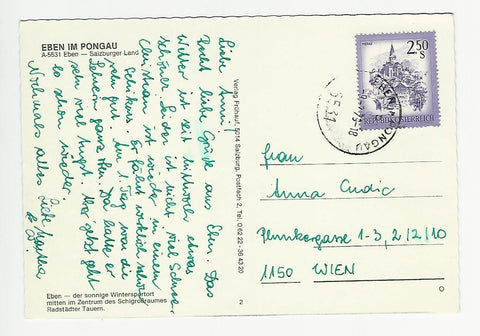 EBEN IM PONGAU
A-5531 Eben — Salzburger Land
Liebe Anni
Recht liebe Grüße aus Eben. Das
Wetter ist seit Mittwoch etwas
schöner. Leider ist nicht viel Schnee.
Christian ist wieder in einem
Schikurs. Er fährt wirklich schon
sehr gut. Am 1. Tag war die
Lehrerin ganz Da hatte er
sehr viel Angst. Aber jetzt geht
es schon wieder.
Nochmals alles Liebe Martha
Verlag Frühauf, 5014 Salzburg, Postfach 2, Tel. 0 62 22 - 36 43 20
2
Eben — der sonnige Wintersportort
mitten im Zentrum des Schigroßraumes
Radstädter Tauern.
2.50
S
REPUBLIK ÖSTERREICH
EBEN IM PONGAU
5531
Frau
Anna Cudic
1-3, 2/2/10
1150 WIEN